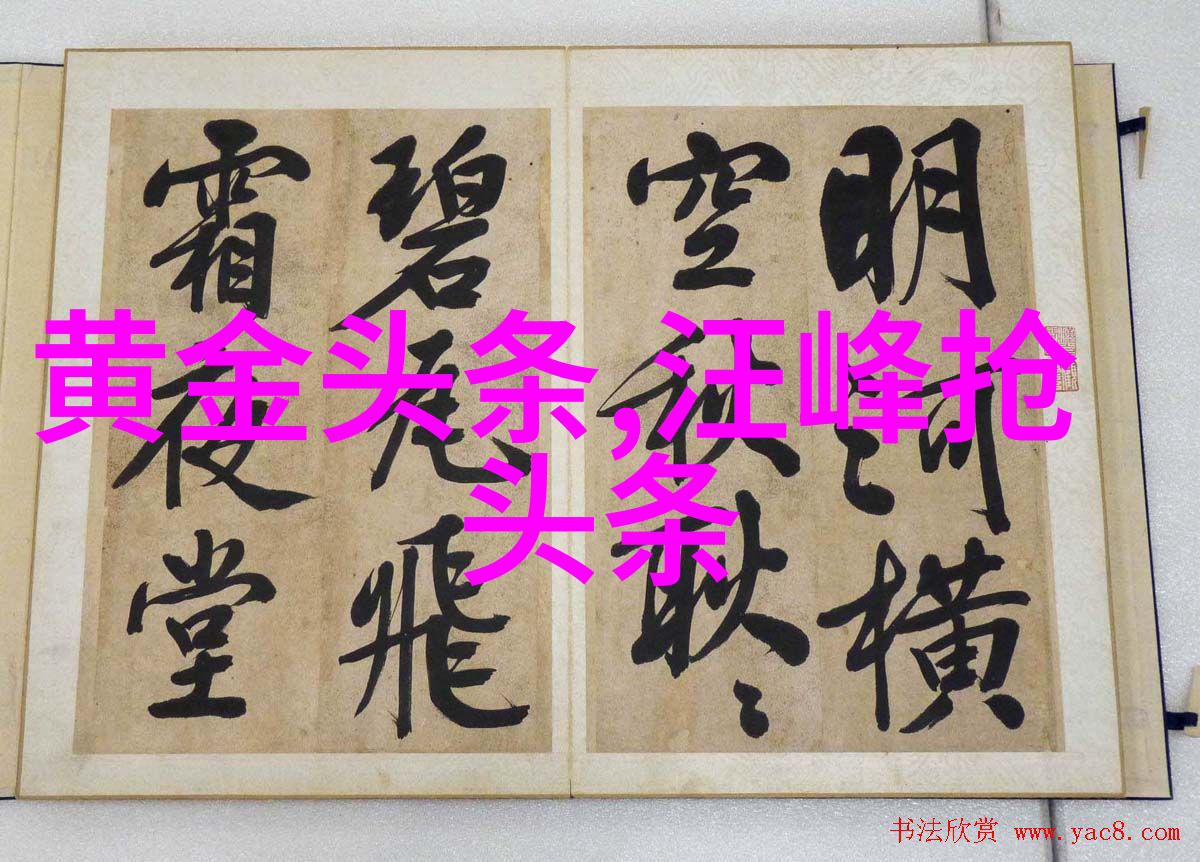 明河横
空秋耿〻
碧瓦飛
霜夜堂
黄金头条,汪峰抢
头条
书法欣赏 www.yac8.com